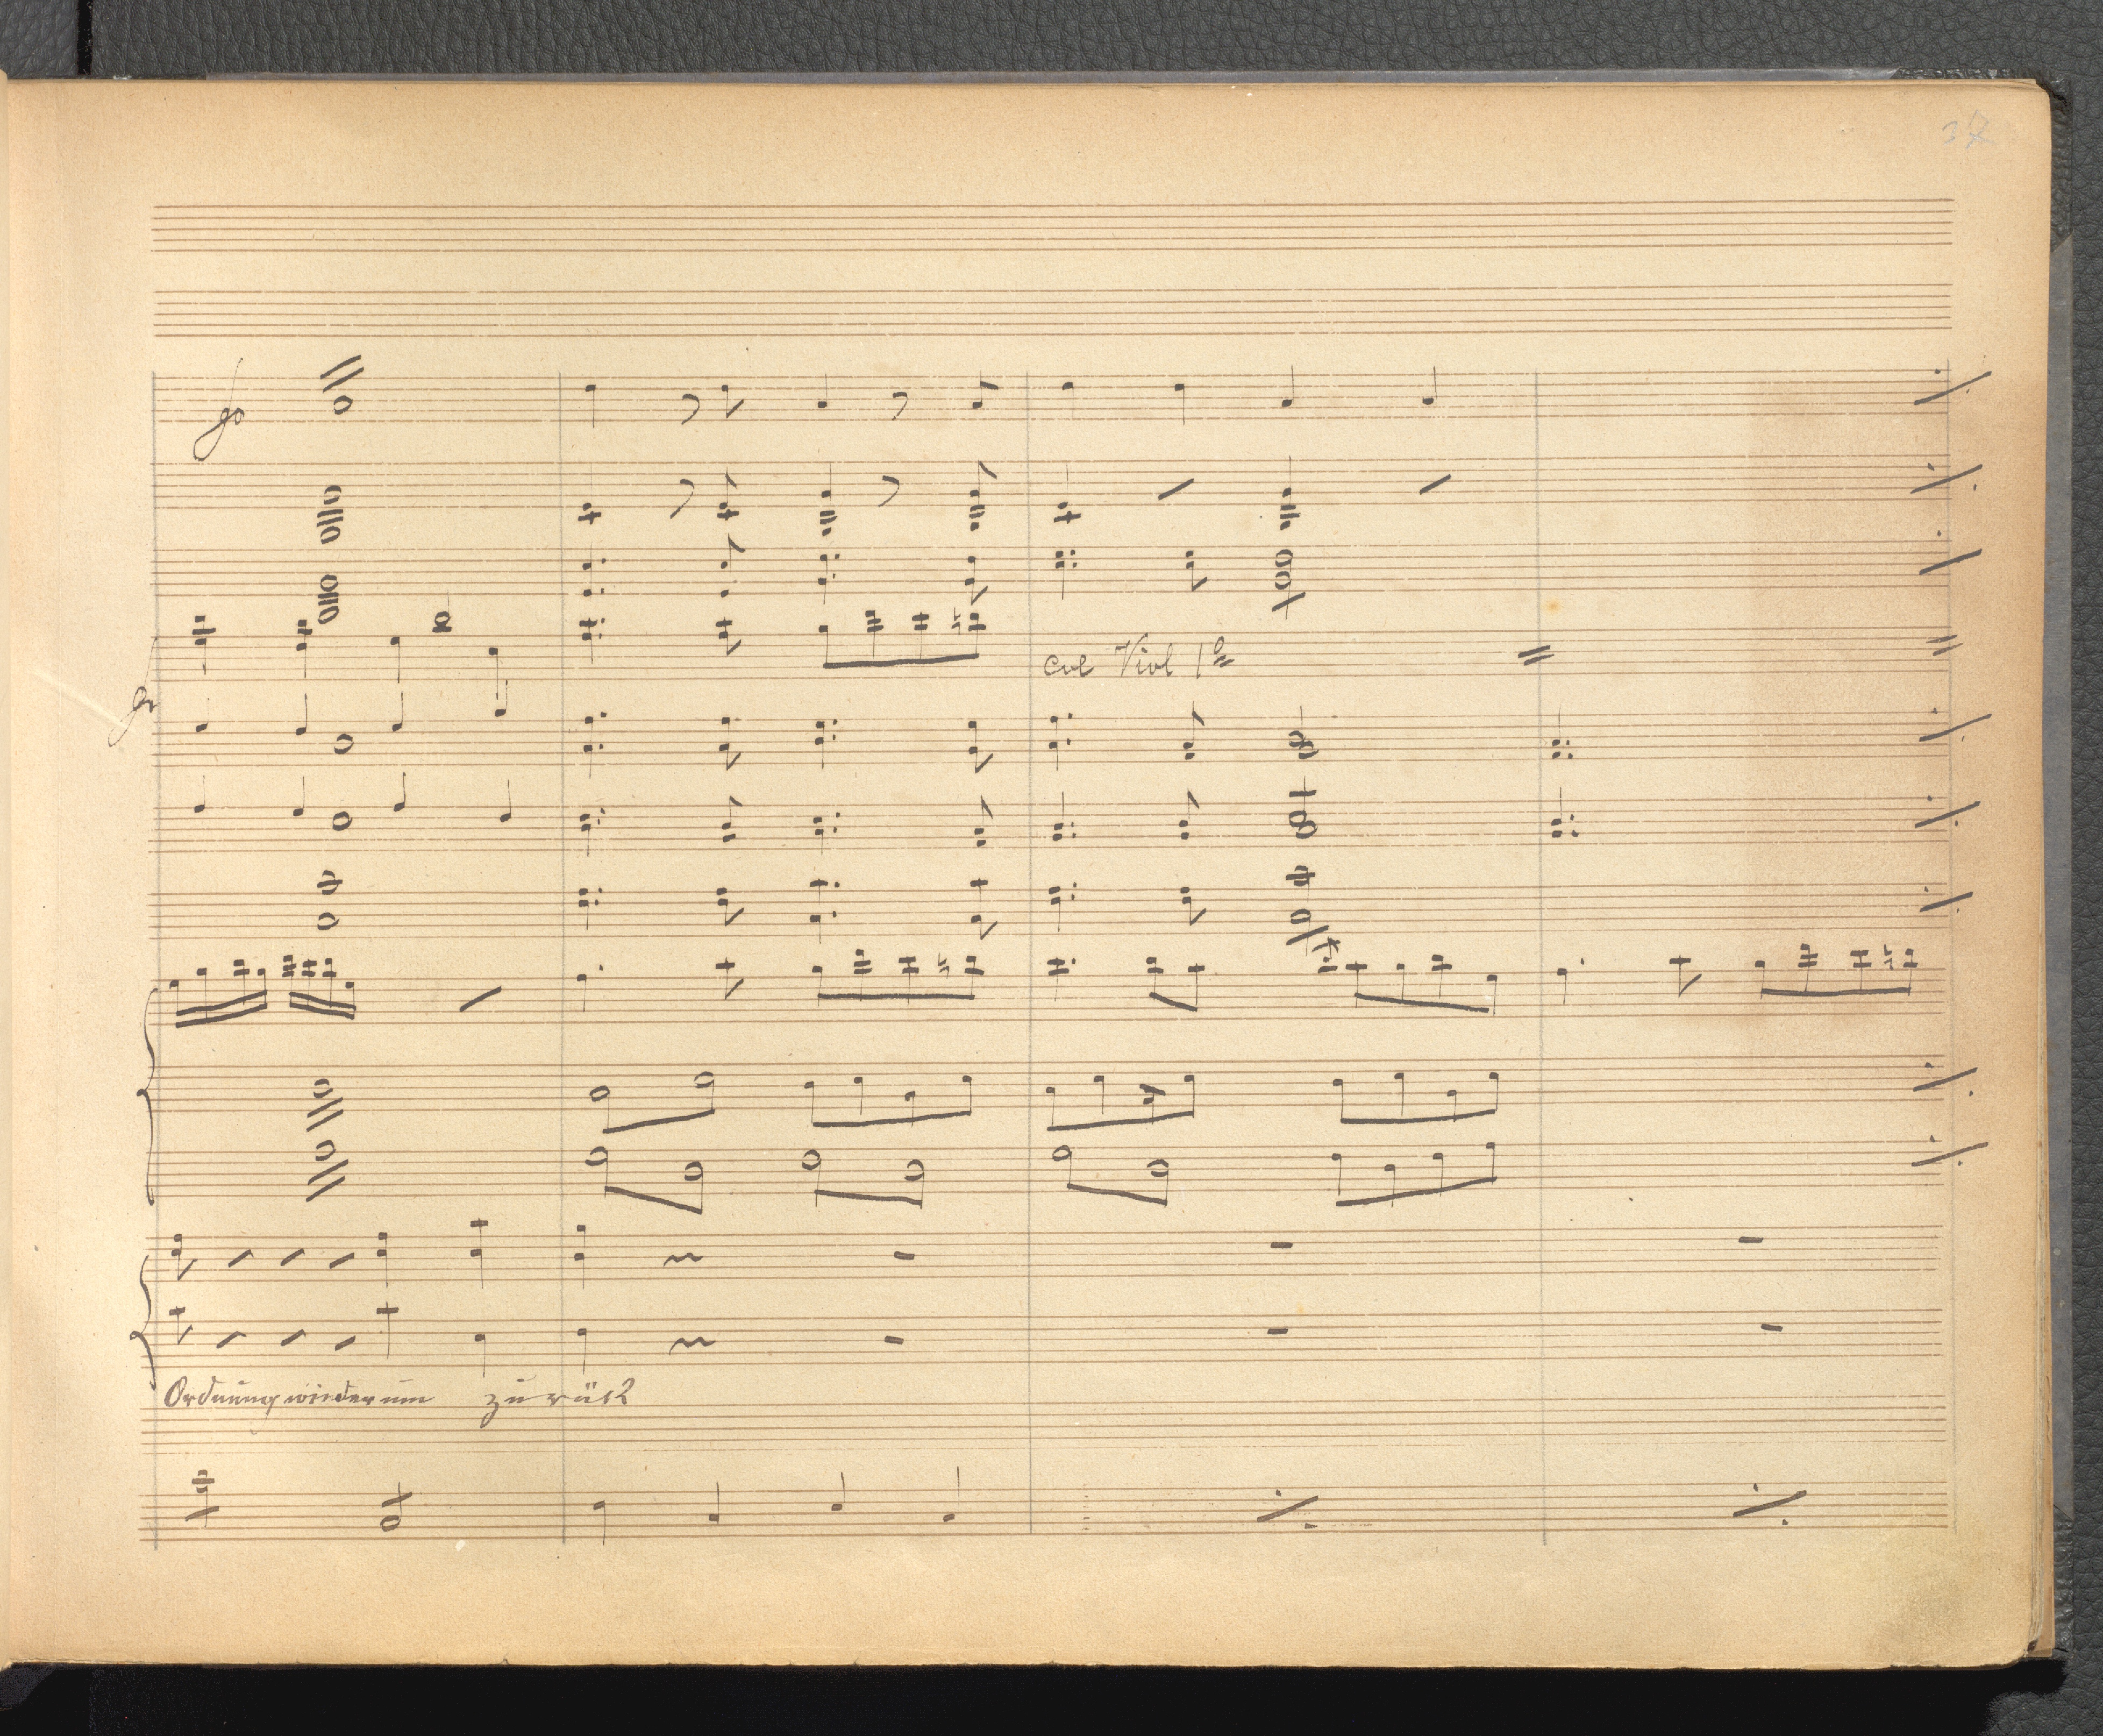 col Viol 1º
Ordnung wiederum zurück